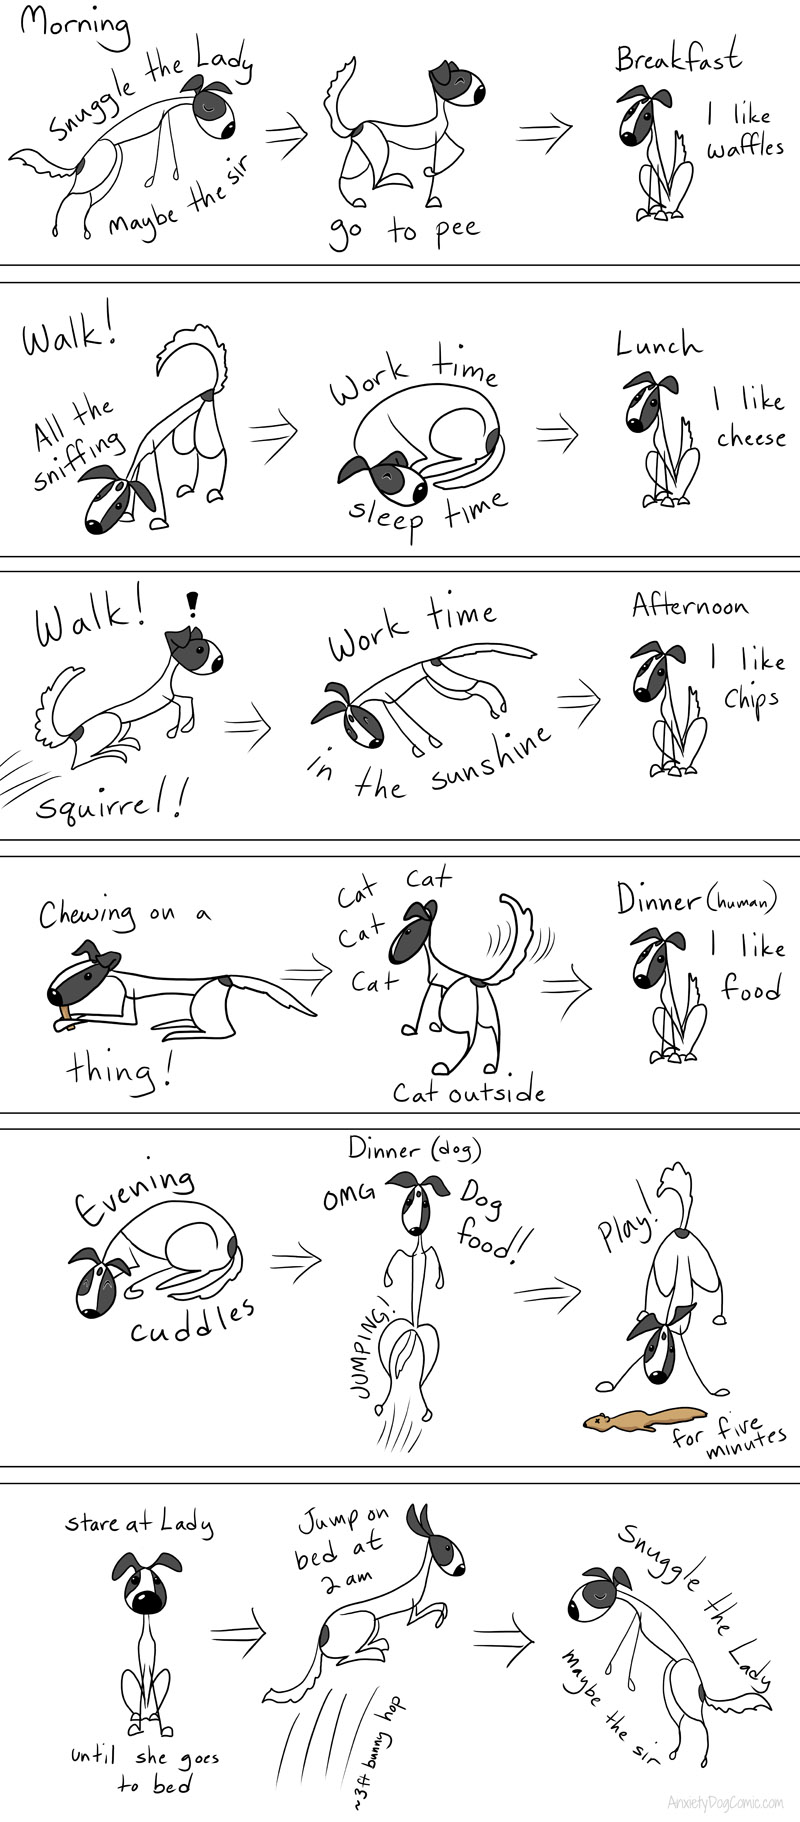 Morning
Snuggle the Lady
maybe the sir
go to pee
Breakfast
I like
waffles
Walk!
All the
sniffing
Work time
sleep time
Lunch
I like
cheese
Walk!
!
squirrel!
Work time
in the sunshine
Afternoon
I like
chips
Chewing on a
thing!
Cat Cat
Cat
Cat
Cat outside
Dinner (human)
I like
food
Evening
cuddles
Dinner (dog)
OMG Dog
food!!
JUMPING!
Play!
for five
minutes
stare at Lady
until she goes
to bed
Jump on
bed at
2 am
~3ft bunny hop
Snuggle the Lady
maybe the sir
AnxietyDogComic.com